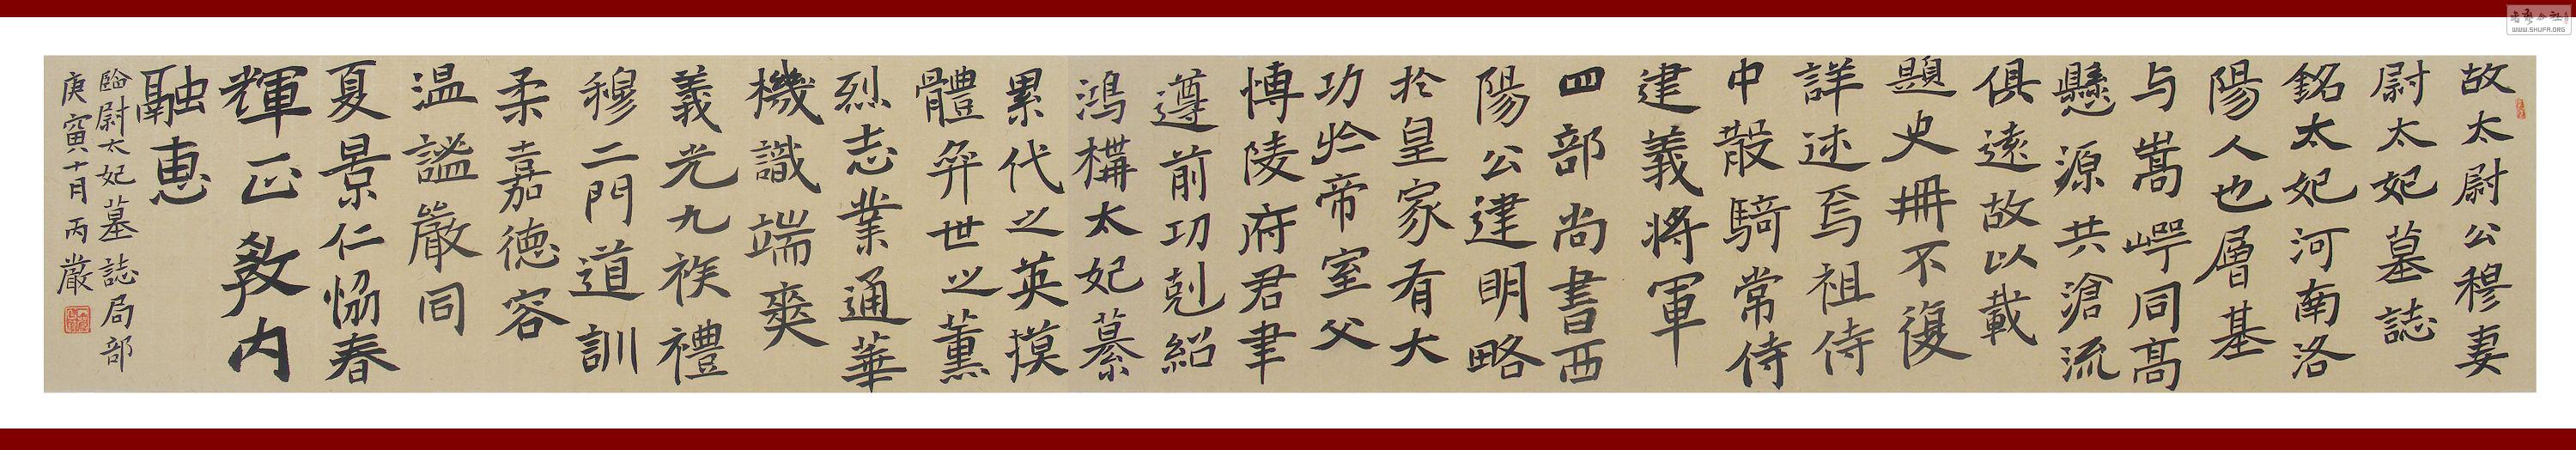 故太尉公穆妻
尉太妃墓誌
銘太妃河南洛
陽人也層基
与嵩崿同高
懸源共滄流
俱遠故以載
題史冊不復
詳述焉祖侍
中散騎常侍
建義將軍
四部尚書西
陽公建明略
於皇家有大
功於帝室父
博陵府君聿
遵前功剋紹
鴻構太妃纂
累代之英摸
體弈世之薰
烈志業通華
機識端爽
義光九族禮
穆二門道訓
柔嘉德容
温謐嚴同
夏景仁恊春
輝正教內
融惠
臨尉太妃墓誌局部
庚寅十月丙嚴
WWW.SHUFA.ORG